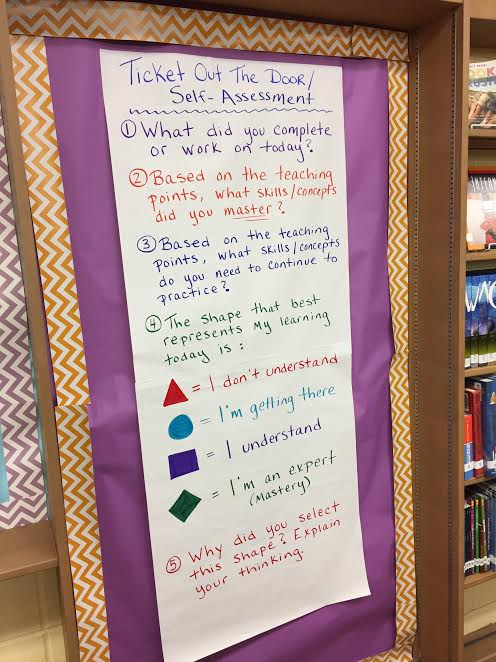 Ticket Out The Door/
Self-Assessment
① What did you complete
or work on today?
② Based on the teaching
points, what skills/concepts
did you master?
③ Based on the teaching
points, what skills/concepts
do you need to continue to
practice?
④ The shape that best
represents my learning
today is:
= I don't understand
= I'm getting there
= I understand
= I'm an expert
(Mastery)
⑤ Why did you select
this shape? Explain
your thinking.